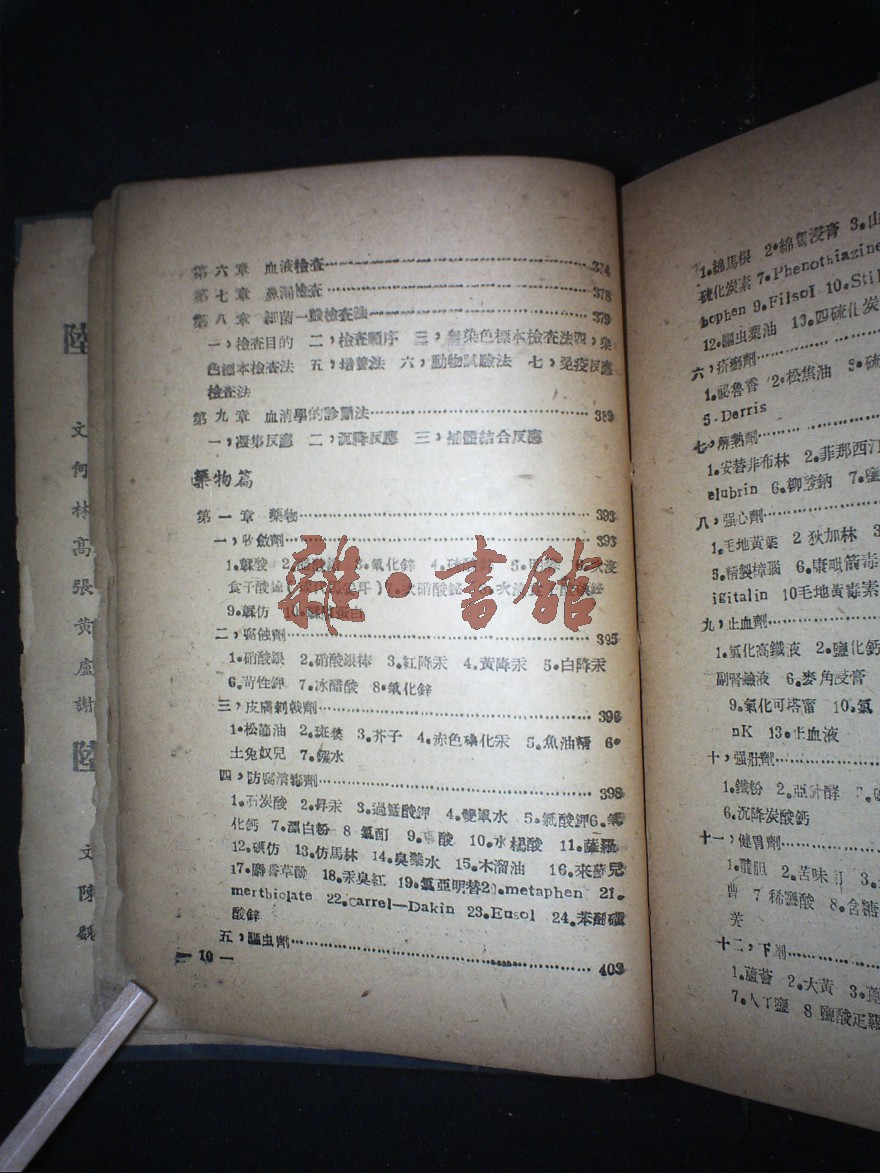 第六章 血液檢查 374
第七章 鼻漏檢查 378
第八章 細菌一般檢查法 379
一，檢查目的 二，檢查順序 三，無染色標本檢查法四，染
色標本檢查法 五，培養法 六，動物試驗法 七，免疫反應
檢查法
第九章 血清學的診斷法 389
一，凝集反應 二，沉降反應 三，補體結合反應
藥物篇
第一章 藥物 393
一，收斂劑 393
1.鞣酸 3.氧化鋅 4.
食子酸鉍 7.次硝酸鉍
9.碘仿 10.鞣酸蛋白
二，腐蝕劑 395
1.硝酸銀 2.硝酸銀棒 3.紅降汞 4.黃降汞 5.白降汞
6.苛性鉀 7.冰醋酸 8.氧化鋅
三，皮膚刺戟劑 396
1.松節油 2.斑蝥 3.芥子 4.赤色碘化汞 5.魚油精 6.
土兔奴兒 7.鏹水
四，防腐消毒劑 398
1.石炭酸 2.昇汞 3.過錳酸鉀 4.雙氧水 5.氯酸鉀6.氧
化鈣 7.漂白粉 8 氯酊 9.硼酸 10.水楊酸 11.薩羅
12.碘仿 13.仿馬林 14.臭藥水 15.木溜油 16.來蘇兒
17.麝香草酚 18.汞臭紅 19.氯亞明替20.metaphen 21.
merthiolate 22.carrel—Dakin 23.Eusol 24.苯酚磺
酸鋅
五，驅虫劑 403
— 10 —
1.綿馬根 2.綿馬浸膏 3.山
硫化炭素 7.Phenothiazine
bophen 9.Filsol 10.Stil
12.驅虫藥油 13.四硫化炭
六，疥癬劑
1.祕魯香 2.松焦油 3.硫
5.Derris
七，解熱劑
1.安替非布林 2.菲那西汀
elubrin 6.柳酸鈉 7.鹽
八，强心劑
1.毛地黃葉 2 狄加林 3.
5.精製樟腦 6.康毗箭毒
igitalin 10毛地黃毒素
九，止血劑
1.氯化高鐵液 2.鹽化鈣
副腎鹼液 6.麥角浸膏
9.氧化可塔雷 10.氯
nK 13.止血液
十，强壯劑
1.鐵粉 2.亞砒酵
6.沉降炭酸鈣
十一，健胃劑
1.龍胆 2.苦味酊 3.
曹 7 稀鹽酸 8.含糖
芙
十二，下劑
1.蘆薈 2.大黃 3.
7.人丁鹽 8 鹽酸疋羅
陸
文
何
林
高
張
黃
盧
謝
陸
文
陳
魏
雜·書館